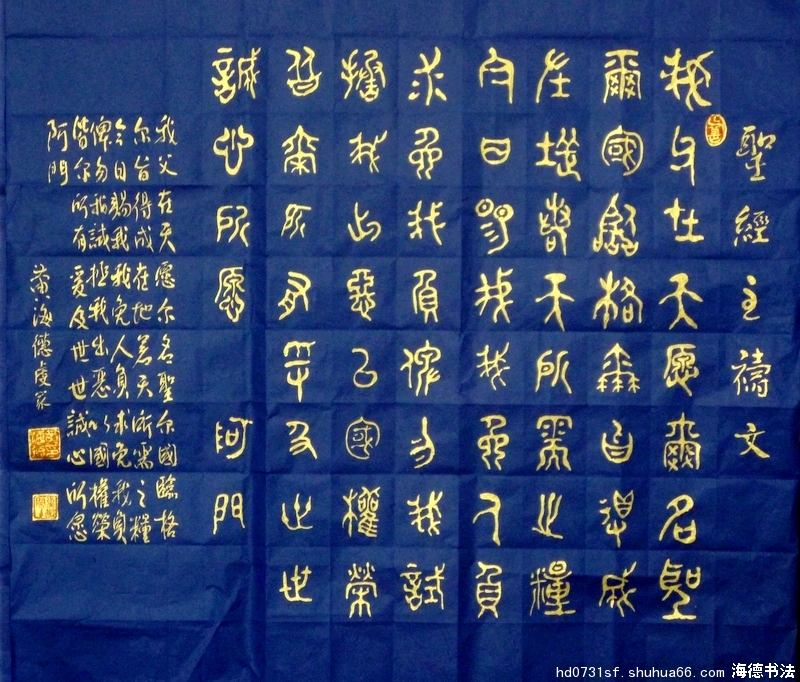 聖經主禱文
我父在天愿爾名聖
爾國臨格爾旨得成
在地若天所需之糧
今日賜我我免人負
求免我負俾勿我試
拯我出惡以國權榮
皆爾所有爰及世世
誠心所愿阿門
我父在天愿尔名聖尔國臨格
尔旨得成在地若天所需之糧
今日賜我我免人負求免我負
俾勿我試拯我出惡以國權榮
皆尔所有爰及世世誠心所愿
阿門
海德虔篆
hd0731sf.shuhua66.com 海德书法